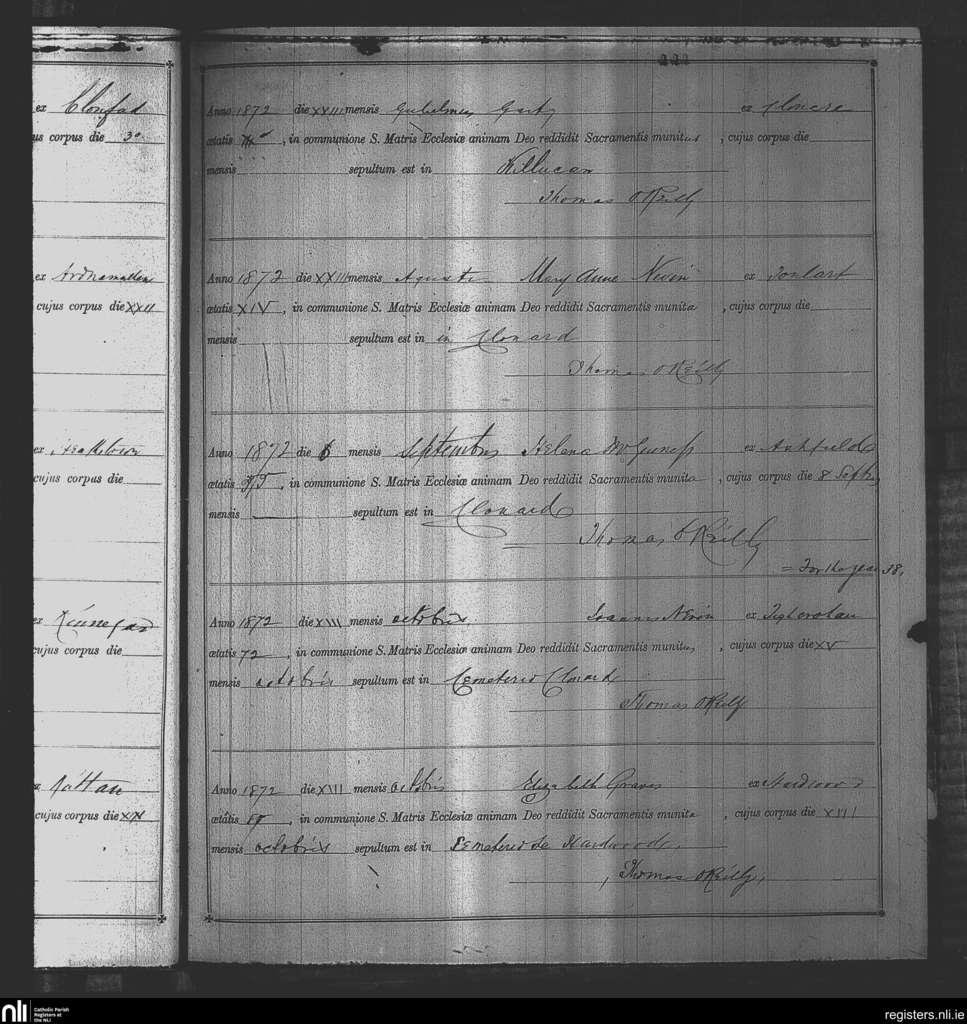 ex Clonfad
us corpus die 30
ex Ardnamullen
cujus corpus die XXII
ex
cujus corpus die
ex Kinnegad
cujus corpus die
cujus corpus die XIX
222
Anno 1872 die XXIII mensis Gulielmus ex Clonard
ætatis , in communione S. Matris Ecclesiæ animam Deo reddidit Sacramentis munitus , cujus corpus die
mensis sepultum est in Killucan
Thomas O'Reilly
Anno 1872 die XXIII mensis Agusti Mary Anne Nevin ex
ætatis XIV , in communione S. Matris Ecclesiæ animam Deo reddidit Sacramentis munita , cujus corpus die
mensis sepultum est in in Clonard
Thomas O'Reilly
Anno 1872 die 6 mensis Septembris Helena McGuness ex Ashfield
ætatis , in communione S. Matris Ecclesiæ animam Deo reddidit Sacramentis munita , cujus corpus die 8 Septbr
mensis sepultum est in Clonard
Thomas O'Reilly
= For the year 38,
Anno 1872 die XIII mensis octobris Joannes Nevin ex
ætatis 72 , in communione S. Matris Ecclesiæ animam Deo reddidit Sacramentis munitus , cujus corpus die XV
mensis octobris sepultum est in Cemeterio Clonard
Thomas O'Reilly
Anno 1872 die XIII mensis octobris Elizabeth Graves ex Hardwood
ætatis , in communione S. Matris Ecclesiæ animam Deo reddidit Sacramentis munita , cujus corpus die XIII
mensis octobris sepultum est in Cemeterio de Hardwood.
, Thomas O'Reilly,
nli Catholic Parish Registers at the NLI
registers.nli.ie